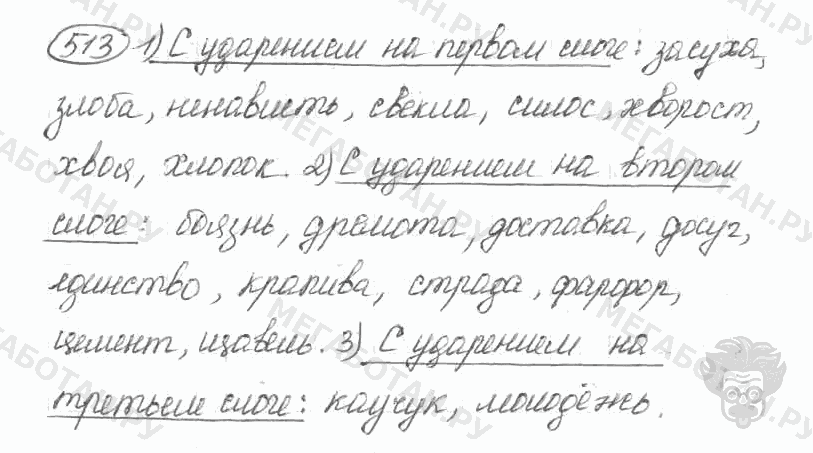 513 1) С ударением на первом слоге: засуха,
злоба, ненависть, свекла, силос, хворост,
хвоя, хлопок. 2) С ударением на втором
слоге: боязнь, дремота, доставка, досуг,
единство, крапива, страда, фарфор,
цемент, щавель. 3) С ударением на
третьем слоге: каучук, молодёжь.